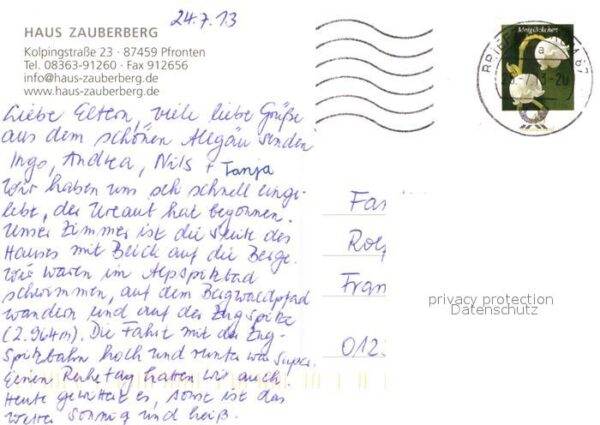 24.7.13
HAUS ZAUBERBERG
Kolpingstraße 23 · 87459 Pfronten
Tel. 08363-91260 · Fax 912656
info@haus-zauberberg.de
www.haus-zauberberg.de
Liebe Eltern, viele liebe Grüße
aus dem schönen Allgäu senden
Ingo, Andrea, Nils + Tanja
Wir haben uns sehr schnell einge-
lebt, der Urlaub hat begonnen.
Unser Zimmer ist die Seite des
Hauses mit Blick auf die Berge.
Wir waren im Alpspitzbad
schwimmen, auf dem Bergwaldpfad
wandern und auf der Zugspitze
(2.964m). Die Fahrt mit der Zug-
spitzbahn hoch und runter war super.
Einen Ruhetag hatten wir auch.
Heute gewittert es, sonst ist das
Wetter sonnig und heiß.
Maiglöckchen
BRIEF 67
Fa
Rol
Fran
012
privacy protection
Datenschutz